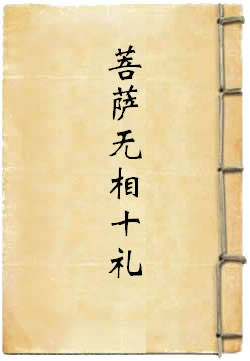 菩萨无相十礼